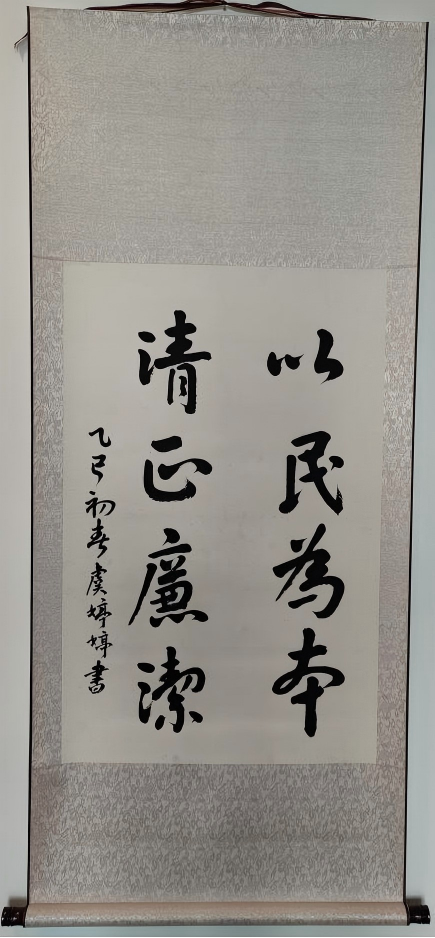 以民為本
清正廉潔
乙巳初春虞婷婷書